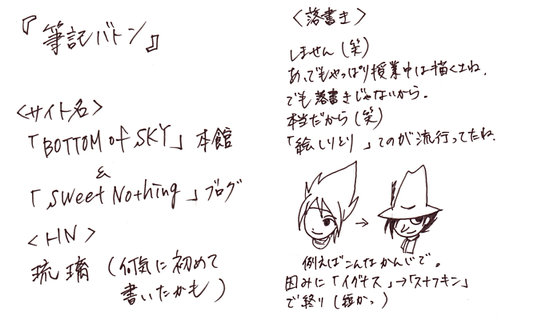 『筆記バトン』
<サイト名>
「BOTTOM of SKY」本館
&
「Sweet Nothing」ブログ
<HN>
琉璃(何気に初めて
書いたかも)
<落書き>
しません(笑)
あ、でもやっぱり授業中は描くよね。
でも落書きじゃないから。
本当だから(笑)
「絵しりとり」てのが流行ってたね。
→
例えばこんなかんじで。
因みに「イグナス」→「スナフキン」
で終り(短かっ)